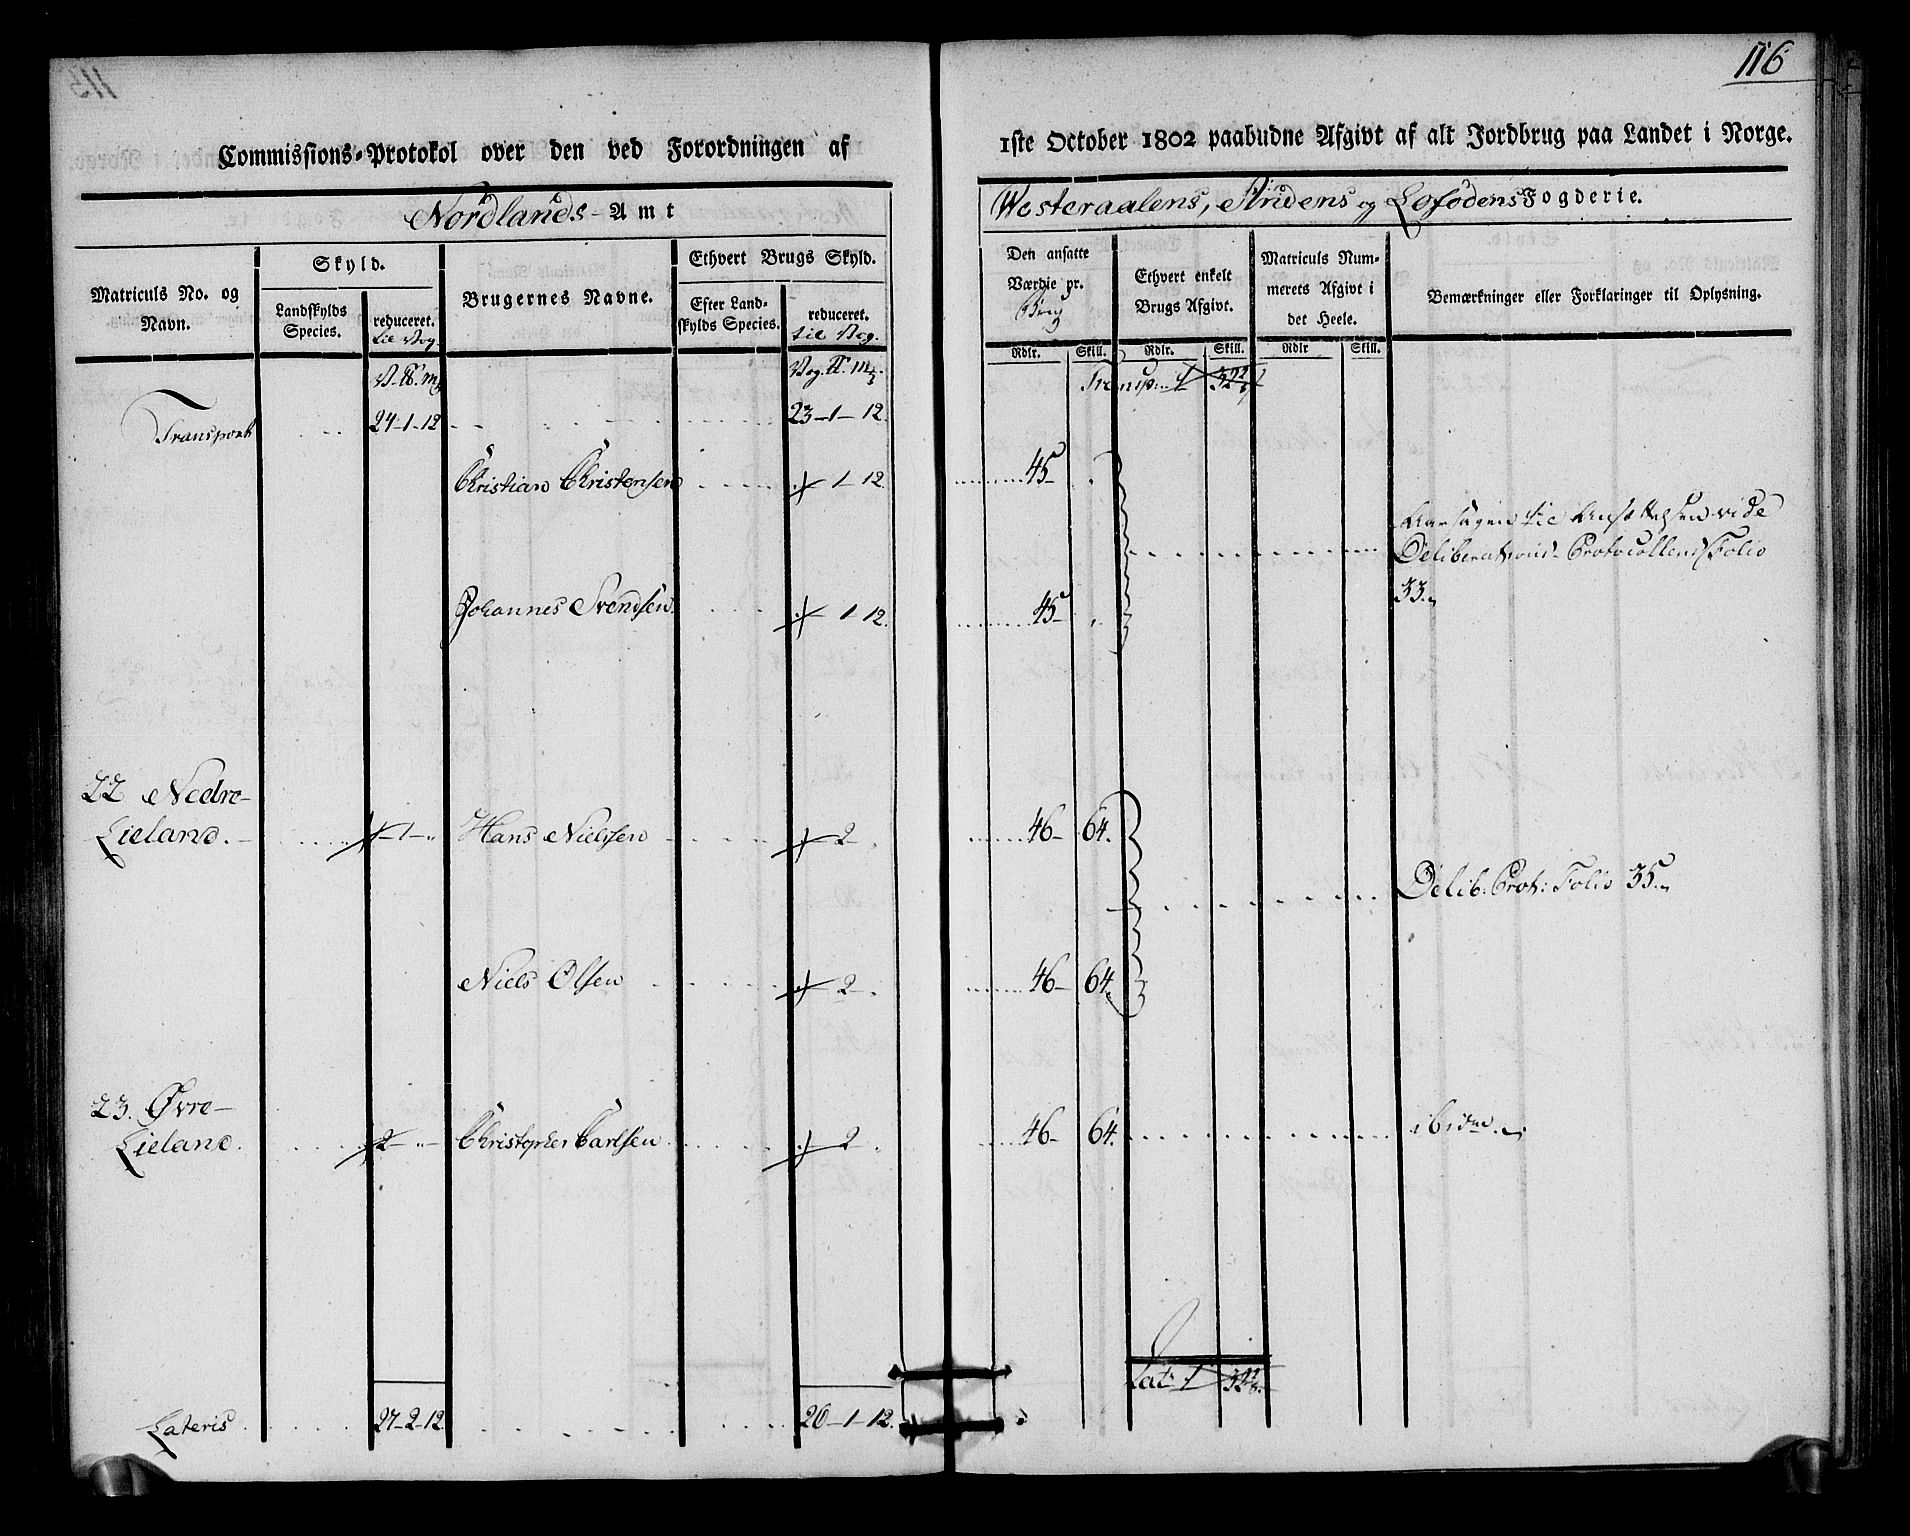 116
Commissions-Protokol over den ved Forordningen af
1ste October 1802 paabudne Afgivt af alt Jordbrug paa Landet i Norge.
Nordlands-Amt
Westeraalens, Andens og Lofodens Fogderie.
Matriculs No. og Navn.
Skyld.
Landskylds Species.
reduceret. til Vog.
Brugernes Navne.
Ethvert Brugs Skyld.
Efter Landskylds Species.
reduceret. til Vog.
Den ansatte Værdie pr. Brug
Ethvert enkelt Brugs Afgivt.
Matriculs Nummerets Afgivt i det Heele.
Bemærkninger eller Forklaringer til Oplysning.
Rdlr. Skill. Rdlr. Skill. Rdlr Skill.
Transport 24-1-12 23-1-12 Transp: 1
Christian Christensen 1-12 45
Aarsagen til Ansættelsen vide
Deliberations-Protocollens Folio
33.
Johannes Svendsen 1-12 45
22 Nedre-
Lieland. 1 Hans Nielsen 2 46 64.
Delib: Prot: Folio 35.
Niels Olsen 2 46 64.
23. Øvre-
Lieland. 2 Christopher Carlsen 2 46 64. ibidm
Lat: 1
Lateris 27-2-12 26-1-12.